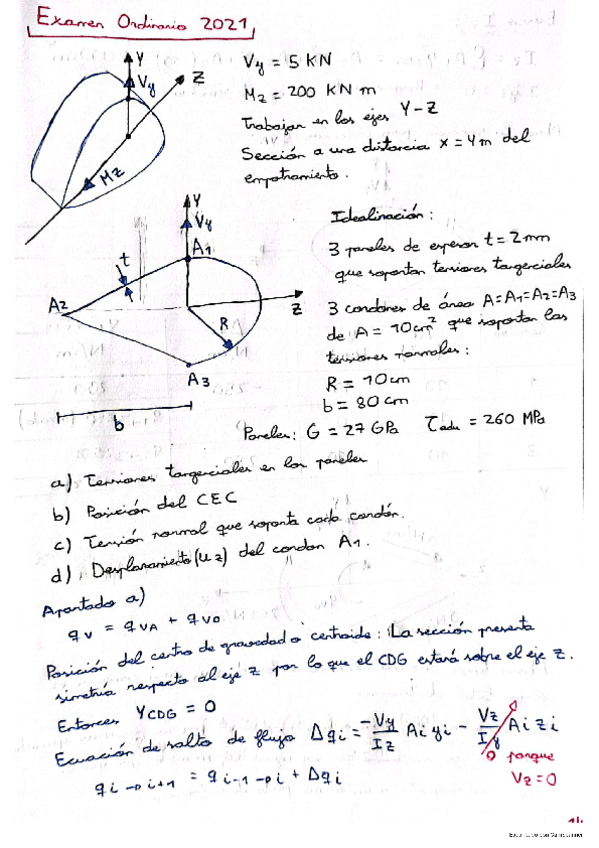 Examen Ordinario 2021
Y
Vy
Z
Mz
Vy = 5 KN
Mz = 200 KN m
Trabajar en los ejes Y-Z
Sección a una distancia x = 4m del
empotramiento.
Y
Vy
A1
t
A2
Z
R
A3
b
Idealización:
3 paneles de espesor t = 2mm
que soportan tensiones tangenciales
3 cordones de área A=A1=A2=A3
de A = 10cm² que soportan las
tensiones normales:
R = 10cm
b = 80cm
Paneles: G = 27 GPa τadm = 260 MPa
a) Tensiones tangenciales en los paneles
b) Posición del CEC
c) Tensión normal que soporta cada cordón.
d) Desplazamiento (uz) del cordon A1.
Apartado a)
qv = qvA + qvo
Posición del centro de gravedad o centroide: La sección presenta
simetría respecto al eje z por lo que el CDG estará sobre el eje z.
Entonces YCDG = 0
Ecuación de salto de flujo Δqi = -Vy/Iz Ai yi - Vz/Iy Ai zi
0 porque
Vz = 0
qi→i+1 = qi-1→i + Δqi